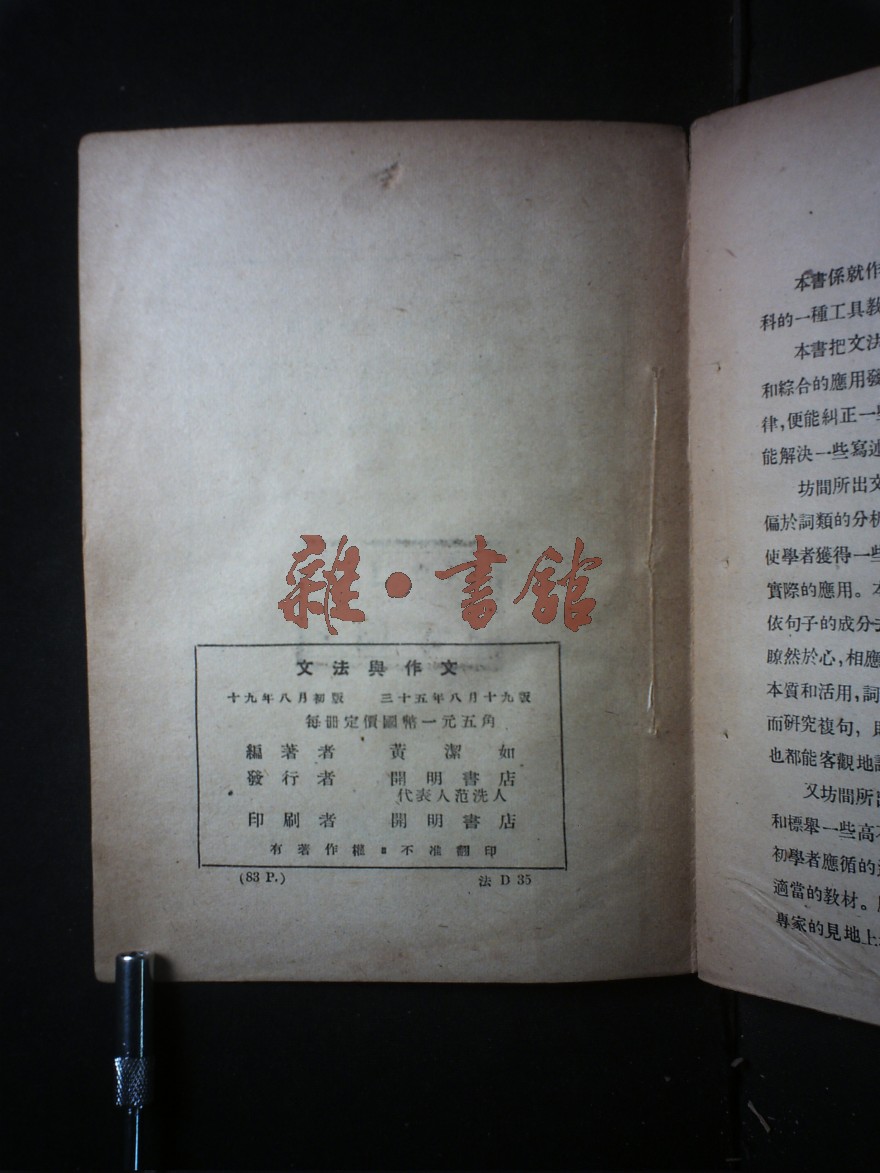 雜·書館
文法與作文
十九年八月初版 三十五年八月十九版
每冊定價國幣一元五角
編著者 黃潔如
發行者 開明書店
代表人范洗人
印刷者 開明書店
有著作權 不准翻印
(83 P.) 法 D 35
本書係就作
科的一種工具教
本書把文法
和綜合的應用發
律,便能糾正一些
能解決一些寫述
坊間所出文
偏於詞類的分析
使學者獲得一些
實際的應用。本
依句子的成分去
瞭然於心,相應
本質和活用,詞
而研究複句,
也都能客觀地
又坊間所出
和標舉一些高不
初學者應循的
適當的教材。
專家的見地上